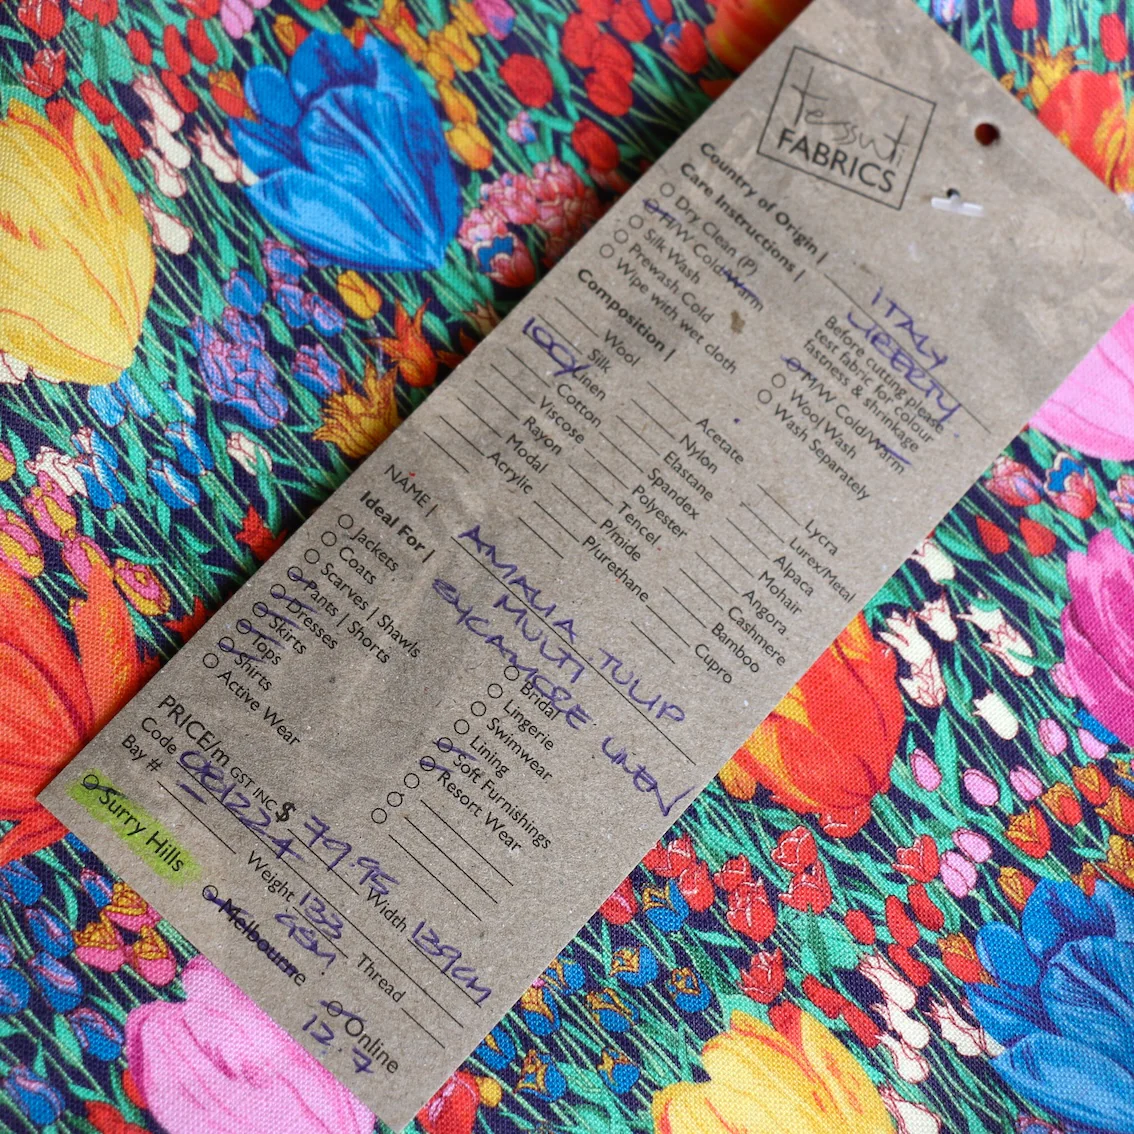 Tessuti
FABRICS
Country of Origin | ITALY
Care Instructions | LIBERTY
Dry Clean (P)
H/W Cold/Warm
Silk Wash
Prewash Cold
Wipe with wet cloth
Before cutting please
test fabric for colour
fastness & shrinkage
M/W Cold/Warm
Wool Wash
Wash Separately
Composition |
Wool
Silk
100% Linen
Cotton
Viscose
Rayon
Modal
Acrylic
Acetate
Nylon
Elastane
Spandex
Polyester
Tencel
P/mide
P/urethane
Lycra
Lurex/Metal
Alpaca
Mohair
Angora
Cashmere
Bamboo
Cupro
NAME | AMALIA TULIP
MULTI
SYCAMORE LINEN
Ideal For |
Jackets
Coats
Scarves | Shawls
Pants | Shorts
Dresses
Skirts
Tops
Shirts
Active Wear
Bridal
Lingerie
Swimwear
Lining
Soft Furnishings
Resort Wear
PRICE/m GST INC $ 79.95
Code 081224
Width 139cm
Bay #
Weight 133 GSM
Thread
Surry Hills
Melbourne
Online
12.7